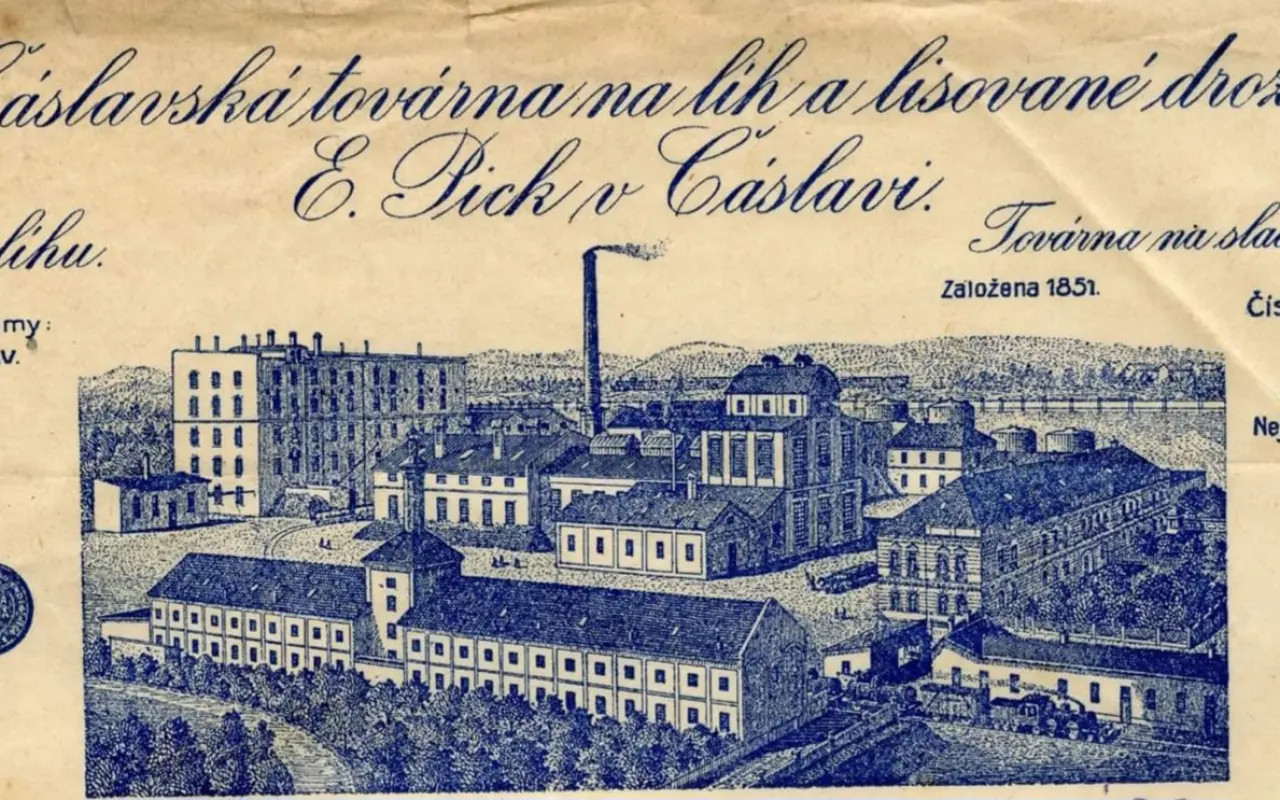 Čáslavská továrna na líh a lisované drož
E. Pick v Čáslavi.
líhu.
Továrna na slad
Založena 1851.
my:
v.
Čís
Ne